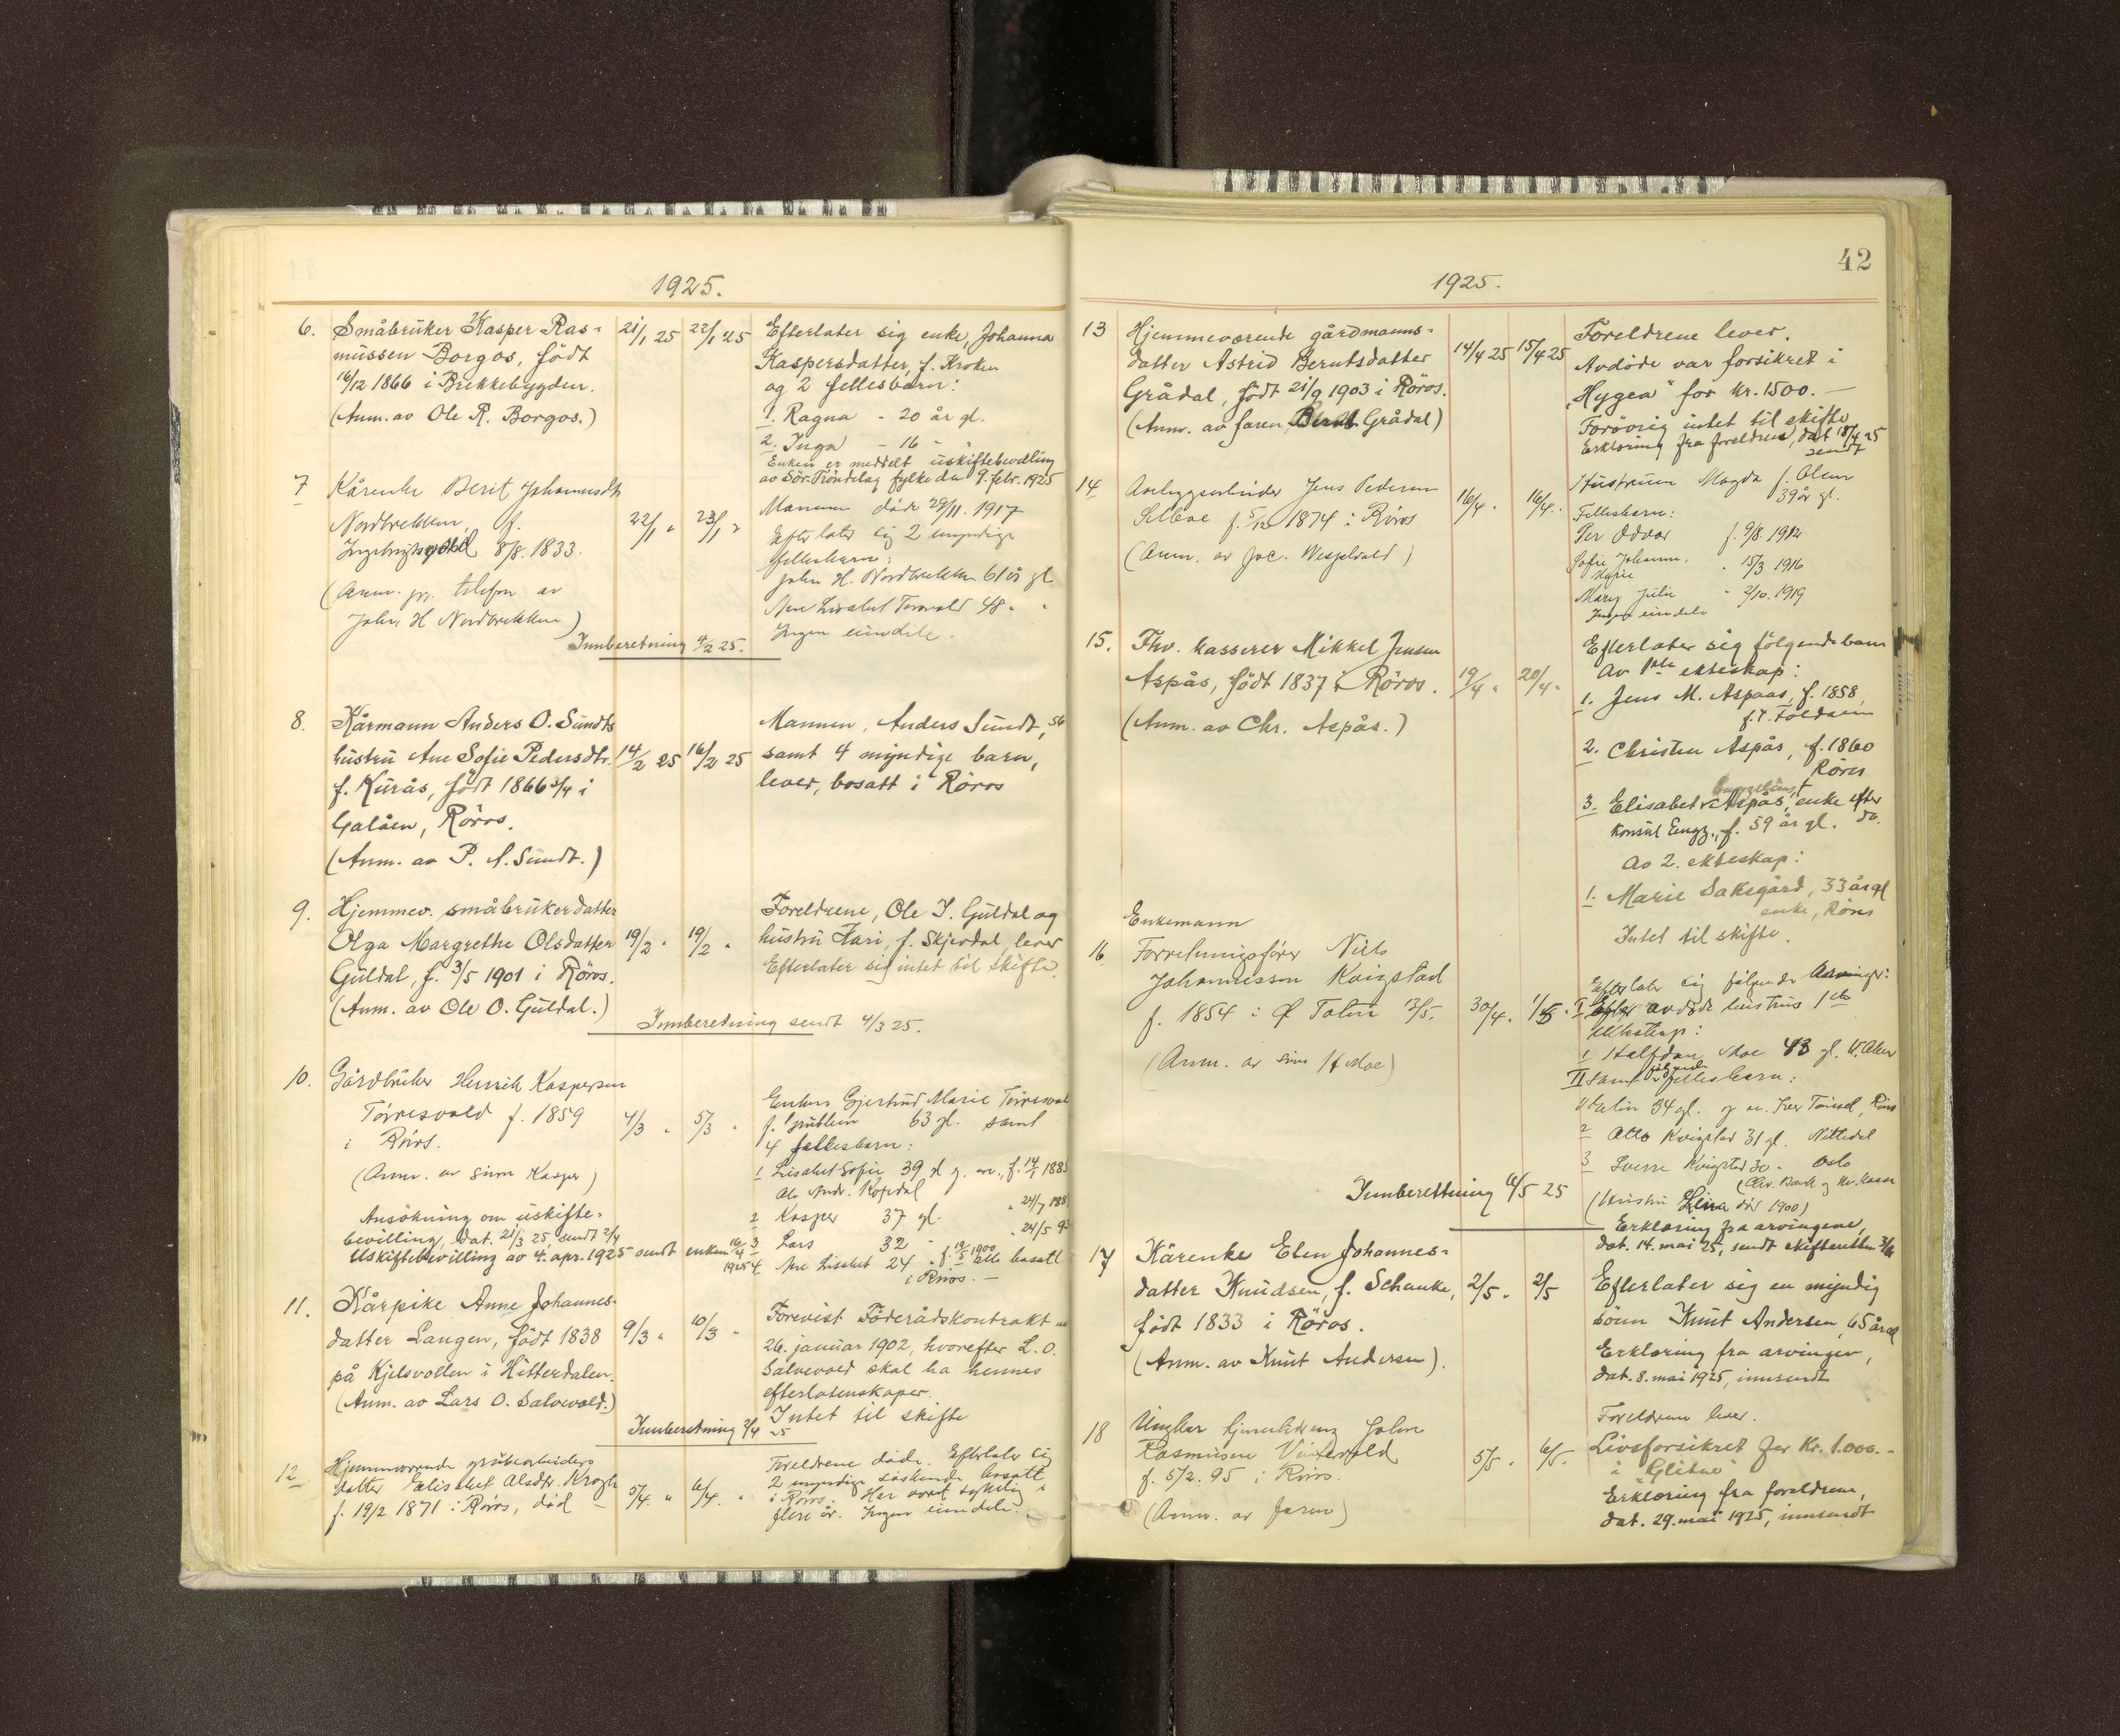 1925.
6. Småbrüker Kasper Ras-
müssen Borgos, født
16/12 1866 i Brekkebygden.
(Anm. av Ole R. Borgos.)
21/1 25 22/1 25
Efterlater sig enke, Johanna
Kaspersdatter, f. Kroken
og 2 fellesbarn:
1. Ragna - 20 år gl.
2. Inga - 16 " "
Enken er meddelt uskiftebevilling
av Sör-Tröndelag fylke da 9. febr. 1925
7 Kårenke Berit Johannesdtr
Nordbrekken, f.
8/8. 1833.
(Anm. pr. telefon av
John H Nordbrekken)
22/1 " 23/1 "
Mannen döde 29/11. 1917
Efterlater sig 2 myndige
fellesbarn:
John H. Nordbrekken 61 år gl
Ane Lisabet 48 " "
Ingen eiendele.
Innberetning 4/2 25.
8. Kårmann Anders O. Sündts
hüstrü Ane Sofie Pedersdtr.
f. Kürås, født 1866 3/4 i
Galåen, Röros.
(Anm. av P. A. Sündt.)
14/2 25 16/2 25
Mannen, Anders Sündt, 56
samt 4 myndige barn,
lever, bosatt i Röros
9. Hjemmev. småbrükerdatter
Olga Margrethe Olsdatter
Güldal, f. 3/5 1901 i Röros.
(Anm. av Ole O. Güldal.)
19/2 " 19/2 "
Foreldrene, Ole J. Güldal og
hüstrü Kari, f. Skjevdal, lever
Efterlater sig intet til skifte.
Innberetning sendt 4/3 25.
10. Gårdbrüker Henrik Kaspersen
Törresvold f. 1859
i Röros.
(Anm. av sönn Kasper)
4/3 " 5/3 "
Ansökning om uskifte-
bevilling, dat. 21/3 25, sendt 2/4
Uskiftebevilling av 4. apr. 1925 sendt enken 16/4 1925
Enken Gjertrud Marie
f. 63 gl. samt
4 fellesbarn:
1 Lisabet Sofie 39 gl g. m.
Ole Andr. Kopdal
2 Kasper 37 gl.
3 Lars 32 "
4. Ane Lisabet 24 " f. 19/5 1900 alle bosatt
i Röros. —
11. Kårpike Anne Johannes-
datter Langen, født 1838
på Kjelsvollen i Hitterdalen.
(Anm. av Lars O. Salvevold.)
9/3 " 10/3 "
Forevist Föderådskontrakt
26. januar 1902, hvorefter L. O.
Salvevold skal ha hennes
efterlatenskaper.
Intet til skifte
Innberetning 2/4 25
12 Hjemmeværende grubearbeiders
datter Elisabet Olsdtr. Krogh
f. 19/2 1871 i Röros, död —
5/4. " 6/4. "
Foreldrene döde. Efterlater sig
2 myndige söskende bosatt
i Röros. Har vært sykelig i
flere år. Ingen eiendele.
42
1925.
13 Hjemmeværende gårdmanns-
datter Astrid Berntsdatter
Grådal, født 21/9 1903 i Röros.
(Anm. av faren, Bernt Grådal)
14/4 25 15/4 25
Foreldrene lever.
Avdöde var forsikret i
„Hygea" for kr. 1500. —
Forövrig intet til skifte
Erklæring fra foreldrene, dat 18/4 25
sendt
14 Anleggsarbeider Jens Pedersen
Selboe f. 5/12 1874 i Röros
(Anm. av Jac. )
16/4 " 16/4. "
Hustruen Magda f. Olsen
39 år gl.
Fellesbarn:
Per Oddvar f. 9/8. 1912
Sofie Johanne " 15/3 1916
Marie
Mary Julie " 2/10. 1919
Ingen eiendele
15. Fhv. kasserer Mikkel Jensen
Aspås, født 1837 i Röros.
(Anm. av Chr. Aspås.)
19/4 " 20/4 "
Efterlater sig fölgende barn
Av 1ste ekteskap:
1. Jens M. Aspaas, f. 1858,
f.t. Foldalen
2. Christen Aspås, f. 1860
Röros
3. Elisabet Aspås, enke efter
konsul Engz., f. 59 år gl. do.
Av 2. ekteskap:
1. Marie Saksgård, 33 år gl
enke, Röros
Intet til skifte.
Enkemann
16 Forretningsförer Nils
Johannesson Kvigstad
f. 1854 i Ø Toten 13/5.
(Anm. av sönn H Moe)
30/4. 1/5.
Efterlater sig fölgende Arvinger:
I Efter avdöde hustrus 1ste
ekteskap:
1 Halfdan Moe 43 gl. V. Aker
II samt fölgende fellesbarn:
1 Elin 34 gl. g m. Iver , Röros
2 Otto Kvigstad 31 gl. Nittedal
3 Sverre Kvigstad 30 - Oslo
(Hustru Lina död 1900)
Innberetning 6/5 25
Erklæring fra arvingene,
dat. 14. mai 25, sendt skifteretten 3/6
17 Kårenke Elen Johannes-
datter Knudsen, f. Schanke,
født 1833 i Röros.
(Anm. av Knut Andersen).
2/5. " 2/5
Efterlater sig en myndig
sönn Knut Andersen, 65 år gl
Erklæring fra arvingen,
dat. 8. mai 1925, innsendt
18 Ungkar John
Rasmusen
f. 5/2. 95 i Röros.
(Anm. av faren)
5/5. " 6/5. "
Foreldrene lever.
Livsforsikret for Kr. 1.000.-
i "Glitne"
Erklæring fra foreldrene,
dat. 29. mai 1925, innsendt